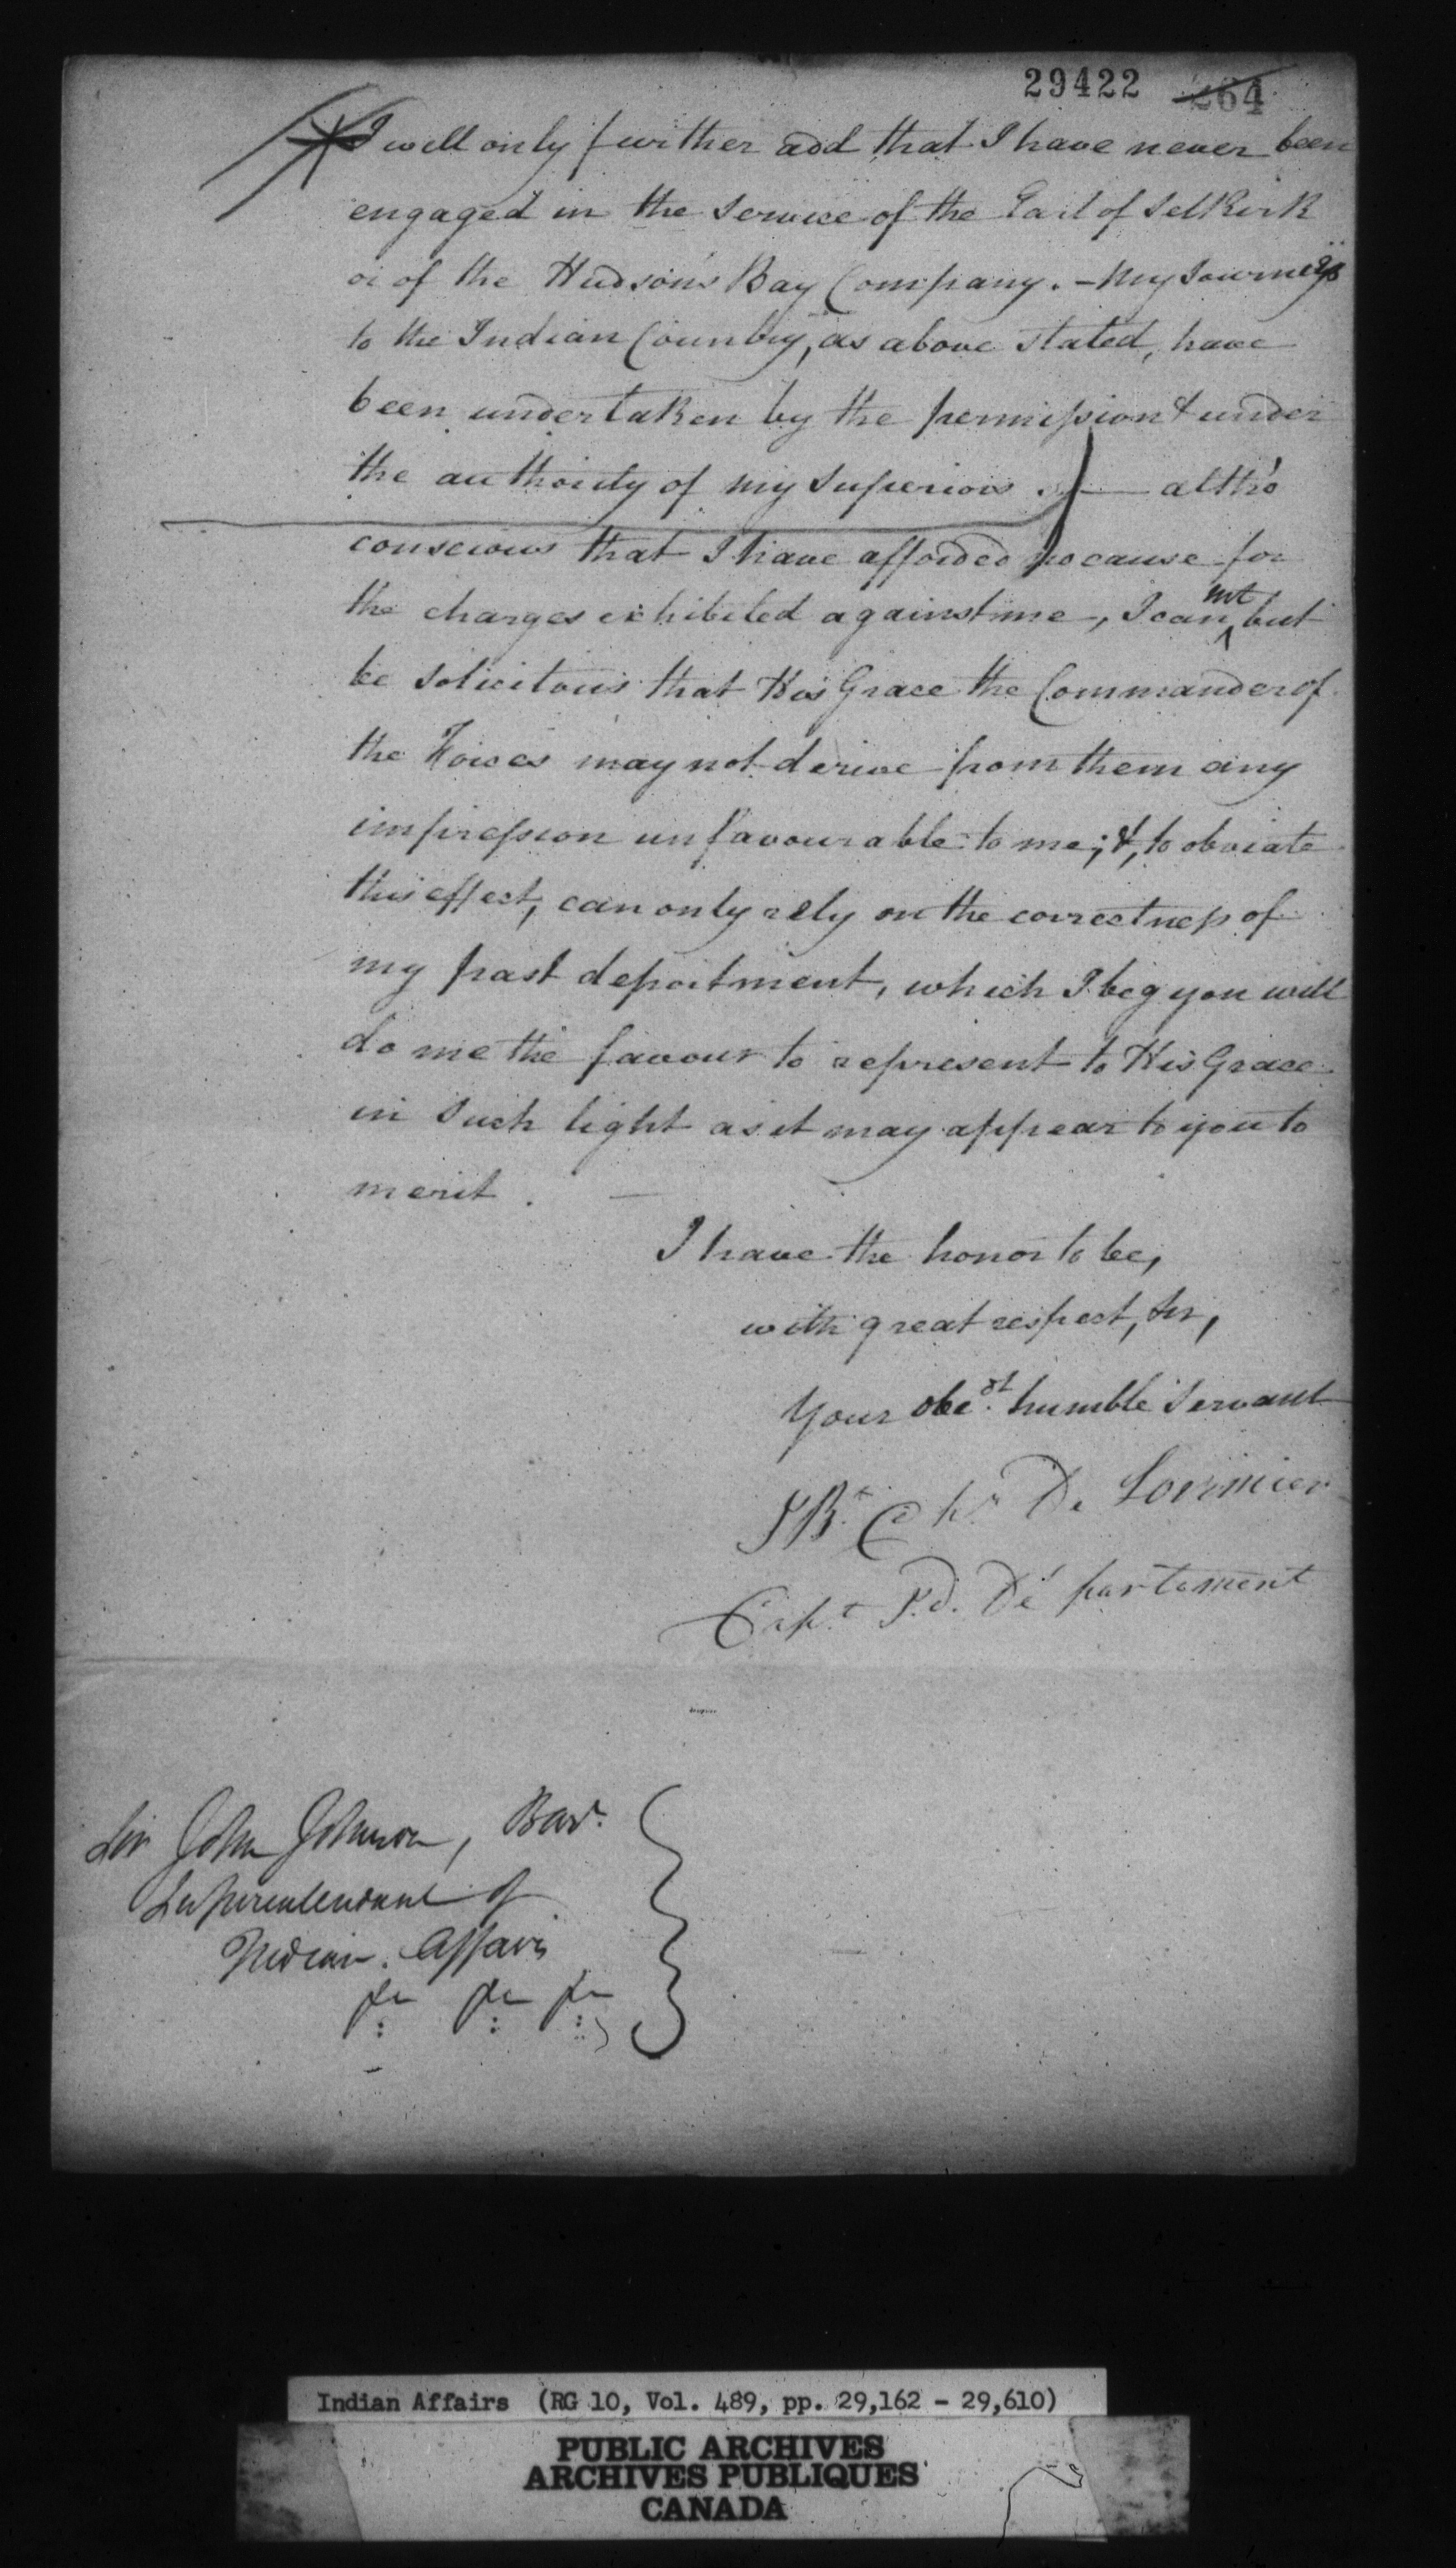 29422 264
I will only further add that I have never been
engaged in the service of the Earl of Selkirk
or of the Hudson's Bay Company. - My Journeys
to the Indian Country, as above stated, have
been undertaken by the permission & under
the authority of my Superiors. — altho'
conscious that I have afforded no cause for
the charges exhibited against me, I can not but
be solicitous that His Grace the Commander of
the Forces may not derive from them any
impression unfavourable to me; &, to obviate
this effect, can only rely on the correctness of
my past deportment, which I beg you will
do me the favour to represent to His Grace
in such light as it may appear to you to
merit. —
I have the honor to be,
with great respect, Sir,
Your obet. humble Servant
JBt Chr De Lorimier
Capt I.d. Département
Sir John Johnson, Bart.
Superintendant of
Indian Affairs
&c &c &c
Indian Affairs (RG 10, Vol. 489, pp. 29,162 - 29,610)
PUBLIC ARCHIVES
ARCHIVES PUBLIQUES
CANADA